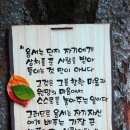 용서는 단지 자기에게
상처를 준 사람을 받아
들이는 것만이 아니다
그것은 그를 향한 미움과
원망의 마음에서
스스로를 놓아주는 일이다
그러므로 용서는 자기 자신
에게 베푸는 가장 큰